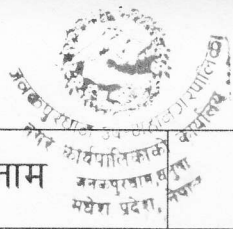 जनकपुरधाम उप-महानगरपालिका
नगर कार्यपालिकाको कार्यालय
जनकपुरधाम, धनुषा
मधेश प्रदेश, नेपाल
नाम